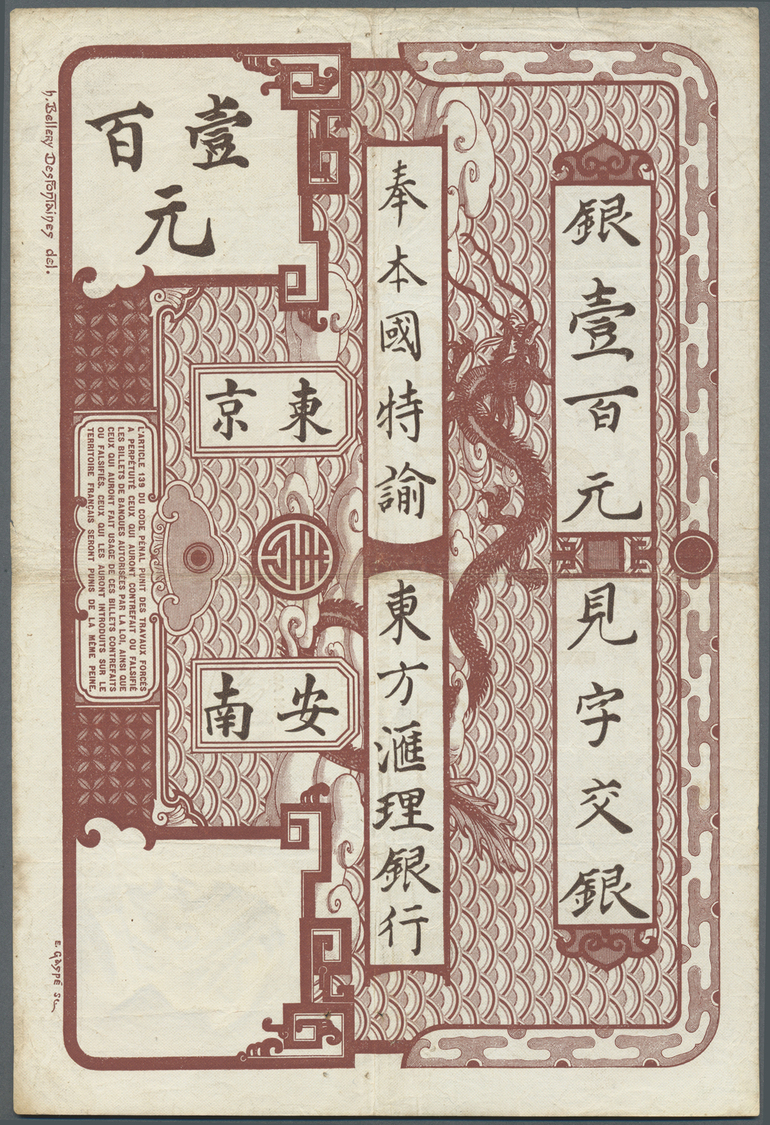 壹百元
銀壹百元見字交銀
奉本國特諭東方滙理銀行
東京
安南
L'ARTICLE 139 DU CODE PÉNAL PUNIT DES TRAVAUX FORCÉS
A PERPÉTUITÉ CEUX QUI AURONT CONTREFAIT OU FALSIFIÉ
LES BILLETS DE BANQUES AUTORISÉES PAR LA LOI, AINSI QUE
CEUX QUI AURONT FAIT USAGE DE CES BILLETS CONTREFAITS
OU FALSIFIÉS. CEUX QUI LES AURONT INTRODUITS SUR LE
TERRITOIRE FRANÇAIS SERONT PUNIS DE LA MÊME PEINE.
h. Bellery Desfontaines del.
E. Gaspé sc